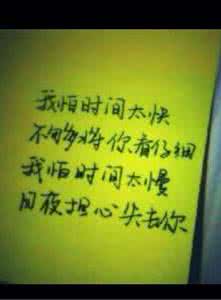 我怕时间太快
不够多将你看仔细
我怕时间太慢
日夜担心失去你